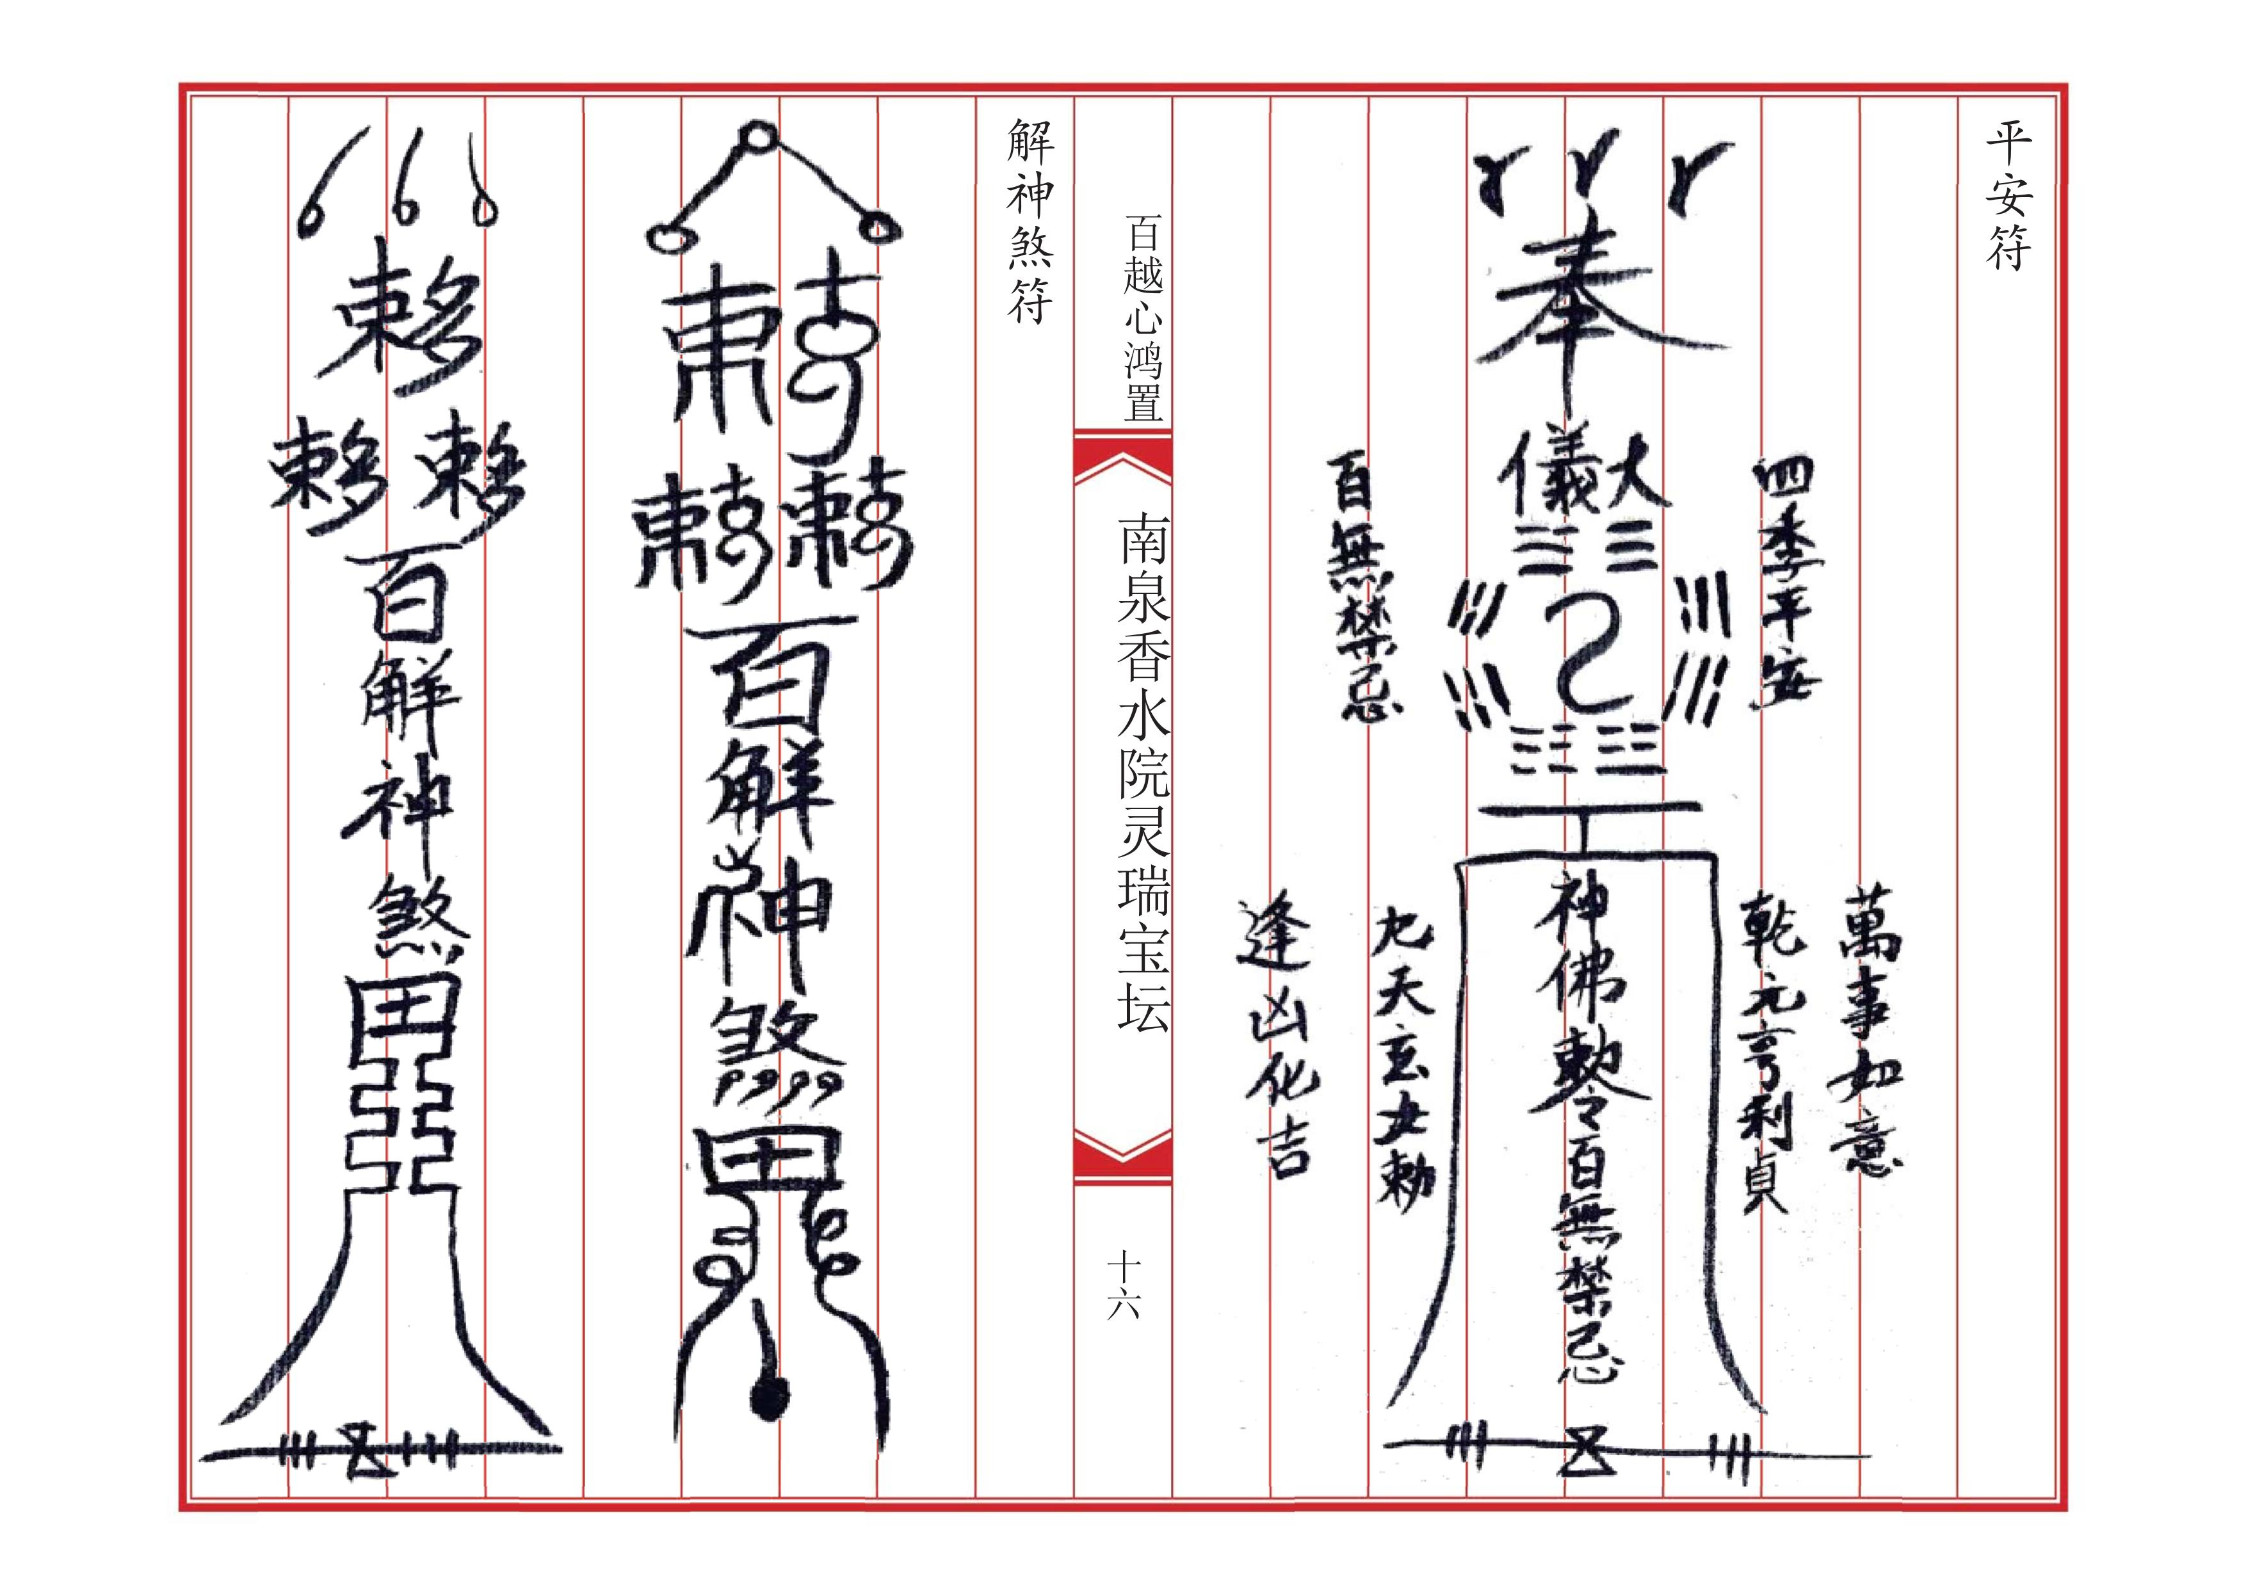 平安符
奉
大儀
四季平安
百無禁忌
萬事如意
乾元亨利貞
神佛勅令百無禁忌
九天玄女勅
逢凶化吉
百越心鸿置
南泉香水院灵瑞宝坛
十六
解神煞符
百解神煞
百解神煞